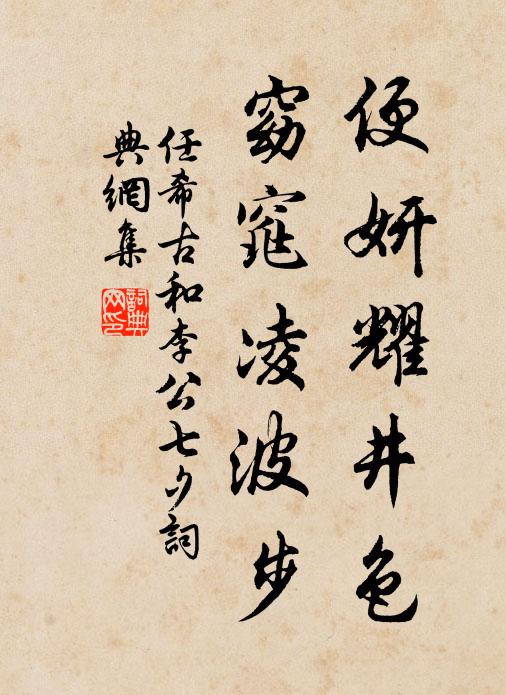 便妍耀井色
窈窕凌波步
任希古和李公七夕詞
典網集
詞典網印